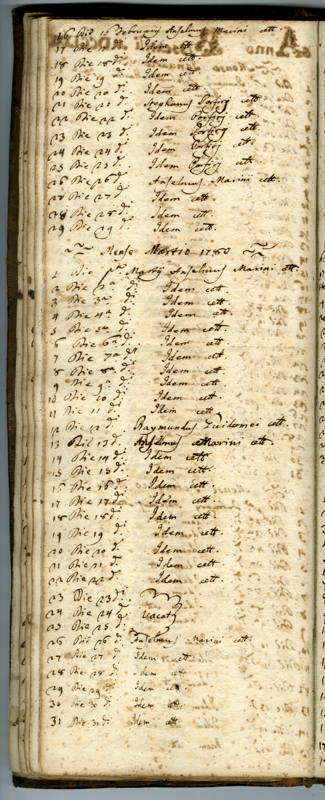 16 Die 16 Februarij Anselmus Marini cett.
17 Die 17 d. Idem cett.
18 Die 18 d. Idem cett.
19 Die 19 d. Idem cett.
20 Die 20 d. Idem cett.
21 Die 21 d. Stephanus cett.
22 Die 22 d. Idem cett.
23 Die 23 d. Idem cett.
24 Die 24 d. Idem cett.
25 Die 25 d. Idem cett.
26 Die 26 d. Anselmus Marini cett.
27 Die 27 d. Idem cett.
28 Die 28 d. Idem cett.
29 Die 29 d. Idem cett.
Mense Martio 1780
1 Die pa Martij Anselmus Marini cett.
2 Die 2a d. Idem cett.
3 Die 3a d. Idem cett.
4 Die 4a d. Idem cett.
5 Die 5a d. Idem cett.
6 Die 6a d. Idem cett.
7 Die 7a d. Idem cett.
8 Die 8a d. Idem cett.
9 Die 9a d. Idem cett.
10 Die 10 d. Idem cett.
11 Die 11 d. Idem cett.
12 Die 12 d. Raymundus cett.
13 Die 13 d. Anselmus Marini cett.
14 Die 14 d. Idem cett.
15 Die 15 d. Idem cett.
16 Die 16 d. Idem cett.
17 Die 17 d. Idem cett.
18 Die 18 d. Idem cett.
19 Die 19 d. Idem cett.
20 Die 20 d. Idem cett.
21 Die 21 d. Idem cett.
22 Die 22 d. Idem cett.
23 Die 23 d.
24 Die 24 d. Vacat
25 Die 25 d.
26 Die 26 d. Anselmus Marini cett.
27 Die 27 d. Idem cett.
28 Die 28 d. Idem cett.
29 Die 29 d. Idem cett.
30 Die 30 d. Idem cett.
31 Die 31 d. Idem cett.